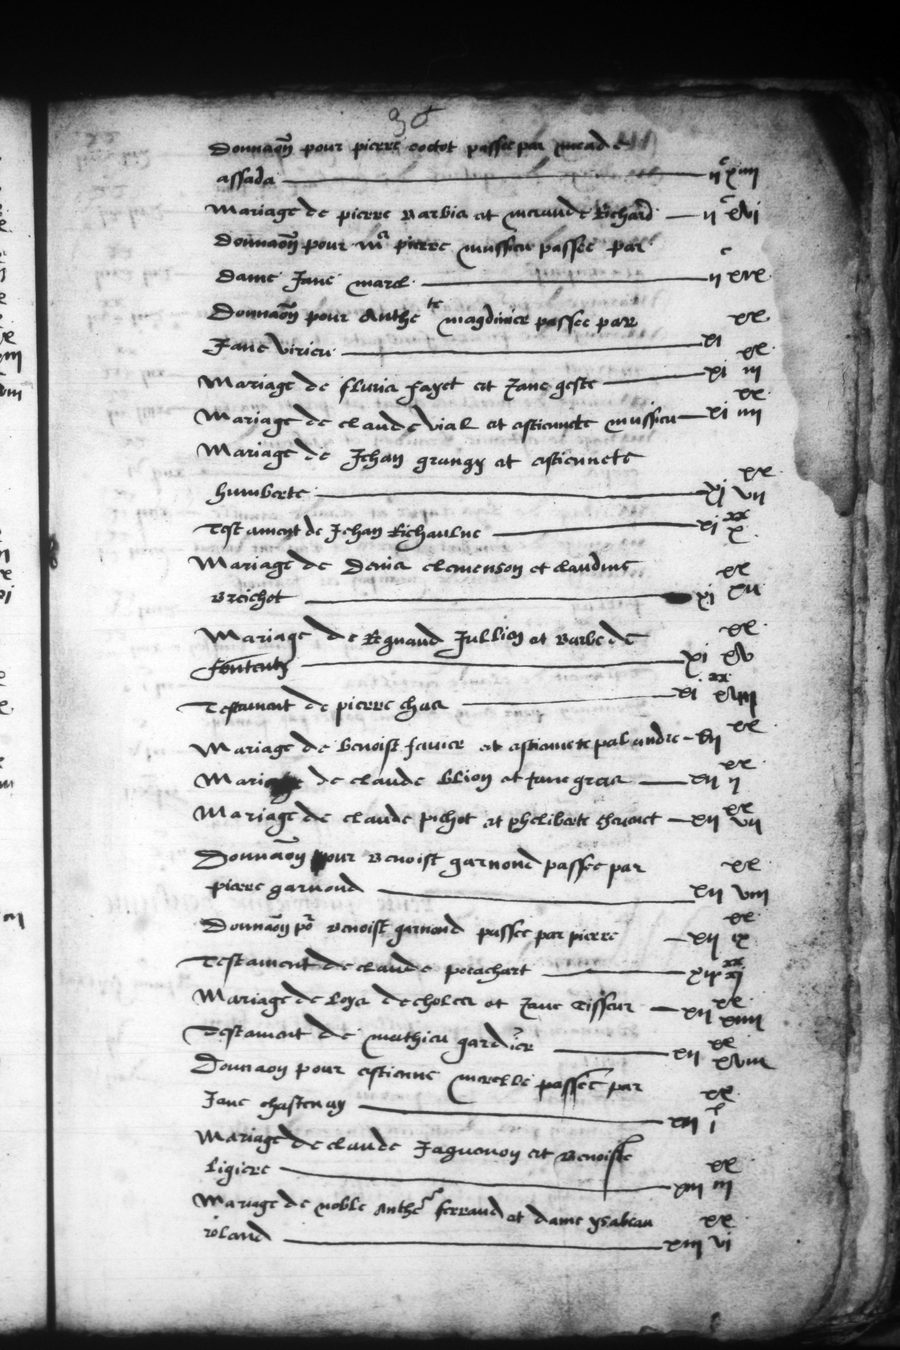 36
Donnaon pour pierre coctot passee par meade
assada ii^c xiiii
Mariage de pierre barbia et meraude Richard ii^c xvi
Donnaon pour m^e pierre mussieu passee par
dame Jane marel ii^c xix
Donnaon pour Anthe^te magdiniere passee par
Jane virieu xi^xx
Mariage de fluria fayet et Jane geste xi^xx iii
Mariage de claude vial et estiennete mussieu xi^xx iiii
Mariage de Jehan grangy et estiennete
humberte xi^xx vii
Testament de Jehan Richaulne xi^xx x
Mariage de Denis clemenson et claudine
breichot xi^xx xii
Mariage de Regnaud Jullion et barbe de
xi^xx xv
Testament de pierre chua xi^xx xviii
Mariage de benoist favier et estiennete palandre xii^xx
Mariage de claude blion et Jane grea xii^xx ii
Mariage de claude pichot et pheliberte thevenet xii^xx vii
Donnaon pour benoist garnond passee par
pierre garnond xii^xx viii
Donnaon po^r benoist garnond passee par pierre xii^xx ix
Testament de claude porachart xii^xx xi
Mariage de Loys decholea et Jane Tisseur xii^xx xiiii
Testament de mathieu gardiere xii^xx xviii
Donnaon pour estienne merelle passee par
Jane chastenay xii^xx
Mariage de claude Jaquenon et benoiste
Ligiere xiii^xx iii
Mariage de noble Anthe^e ferraud et dame ysabeau
roland xiii^xx vi